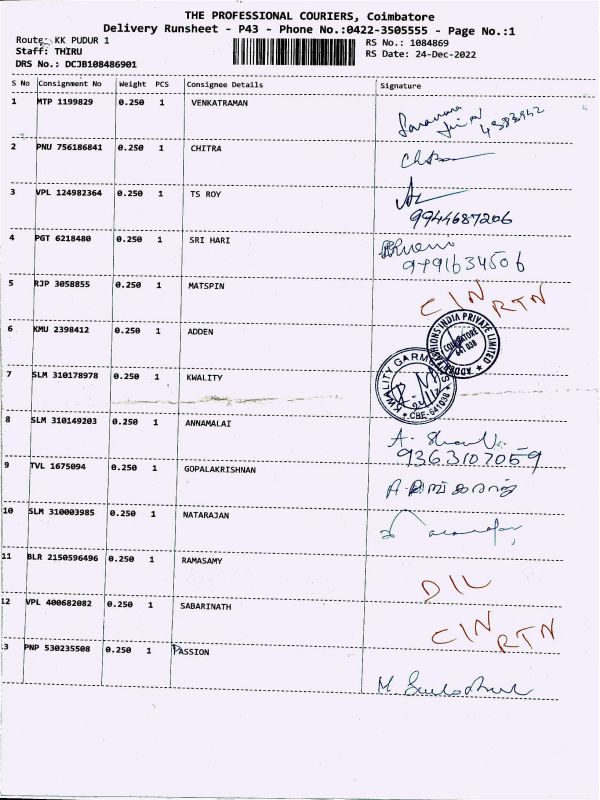 THE PROFESSIONAL COURIERS, Coimbatore
Delivery Runsheet - P43 - Phone No.:0422-3505555 - Page No.:1
Route: KK PUDUR 1
RS No.: 1084869
Staff: THIRU
RS Date: 24-Dec-2022
DRS No.: DCJB108486901
S No Consignment No Weight PCS Consignee Details Signature
1 MTP 1199829 0.250 1 VENKATRAMAN
2 PNU 756186841 0.250 1 CHITRA
3 VPL 124982364 0.250 1 TS ROY
9944687206
4 PGT 6218480 0.250 1 SRI HARI
9791634506
5 RJP 3058855 0.250 1 MATSPIN
CIN RTN
6 KMU 2398412 0.250 1 ADDEN
ADDEN FASHIONS INDIA PRIVATE LIMITED
COIMBATORE
641 038
7 SLM 310178978 0.250 1 KWALITY
KWALITY GARMENTS
CBE-641038
8 SLM 310149203 0.250 1 ANNAMALAI
9363107059
9 TVL 1675094 0.250 1 GOPALAKRISHNAN
10 SLM 310003985 0.250 1 NATARAJAN
11 BLR 2150596496 0.250 1 RAMASAMY
DIL
12 VPL 400682082 0.250 1 SABARINATH
CIN RTN
3 PNP 530235508 0.250 1 PASSION